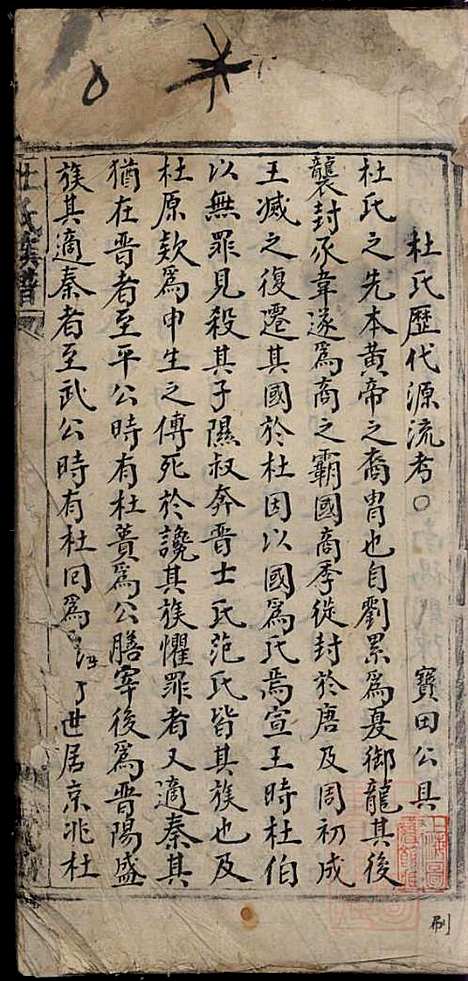 杜氏歷代源流考〇 寶田公具
杜氏之先本黃帝之裔胄也自劉累爲夏御龍其後
襲封豕韋遂爲商之霸國商季徙封於唐及周初成
王滅之復遷其國於杜因以國爲氏焉宣王時杜伯
以無罪見殺其子隰叔奔晋士氏范氏皆其族也及
杜原欵爲申生之傅死於讒其族懼罪者又適秦其
猶在晋者至平公時有杜蕢爲公膳宰後爲晋陽盛
族其適秦者至武公時有杜回爲 世居京兆杜
杜氏族譜
刷